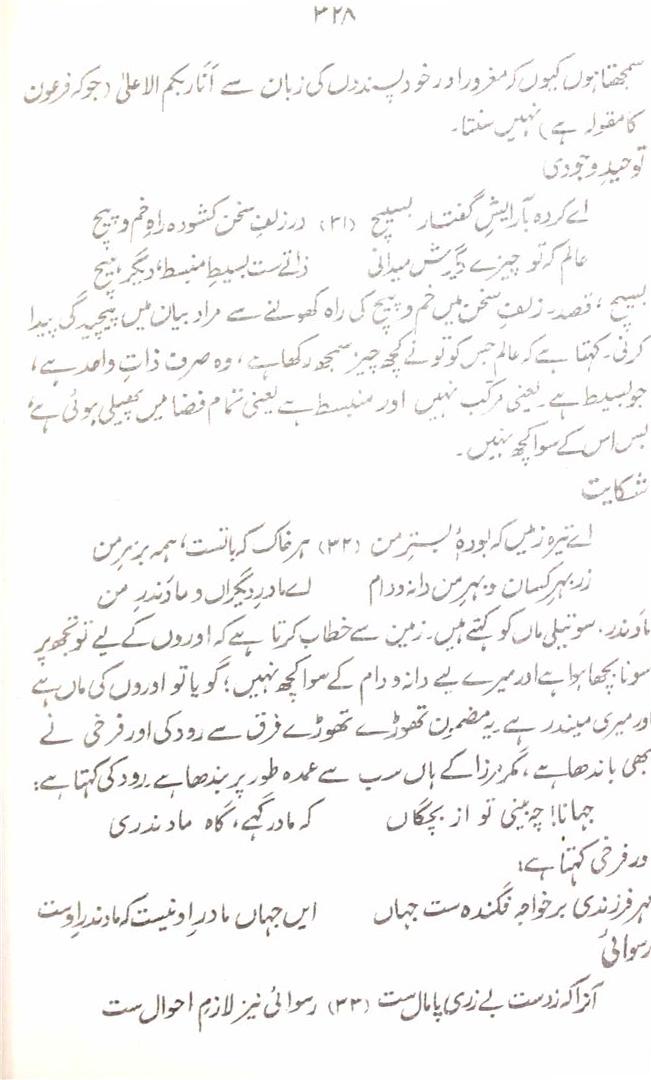 ۳۲۸
سمجھتا ہوں کیوں کہ مغرور اور خود پسندوں کی زبان سے اَنَا رَبکم الاعلیٰ (جو کہ فرعون
کا مقولہ ہے) نہیں سنتا۔
توحیدِ وجودی
اے کردہ بآرایشِ گفتار بسیچ (۳۱) در زلفِ سخن کشودہ راہِ خم و پیچ
عالم کہ تو چیزے دگرش میدانی ذاتے ست بسیطِ منبسط، دیگر ہیچ
بسیچ، قصد۔ زلفِ سخن میں خم و پیچ کی راہ کھولنے سے مراد بیان میں پیچیدگی پیدا
کرنی۔ کہتا ہے کہ عالم جس کو تو نے کچھ چیز سمجھ رکھا ہے، وہ صرف ذاتِ واحد ہے،
جو بسیط ہے۔ یعنی مرکب نہیں اور منبسط ہے یعنی تمام فضا میں پھیلی ہوئی ہے،
بس اس کے سوا کچھ نہیں۔
شکایت
اے تیرہ زمیں کہ بودۂ بسترِ من (۳۲) ہر خاک کہ باتست، ہمہ بر سرِ من
زر بہرِ کسان و بہرِ من دانہ و دام اے مادرِ دیگراں و مادندرِ من
مادندر۔ سوتیلی ماں کو کہتے ہیں۔ زمین سے خطاب کرتا ہے کہ اوروں کے لیے تو تجھ پر
سونا بچھا ہوا ہے اور میرے لیے دانہ و دام کے سوا کچھ نہیں؛ گویا تو اوروں کی ماں ہے
اور میری میندر ہے۔ یہ مضمون تھوڑے تھوڑے فرق سے رودکی اور فرخی نے
بھی باندھا ہے، مگر مرزا کے ہاں سب سے عمدہ طور پر بندھا ہے۔ رودکی کہتا ہے:
جہانا! چہ بینی تو از بچگاں کہ مادر گہے، گاہ مادندری
ور فرخی کہتا ہے:
بہر فرزندی بر خواجہ فگندہ ست جہاں ایں جہاں مادرِ او نیست کہ مادندرِ اوست
رسوائی
آنرا کہ ز دست بے زری پامال ست (۳۳) رسوائی نیز لازمِ احوال ست